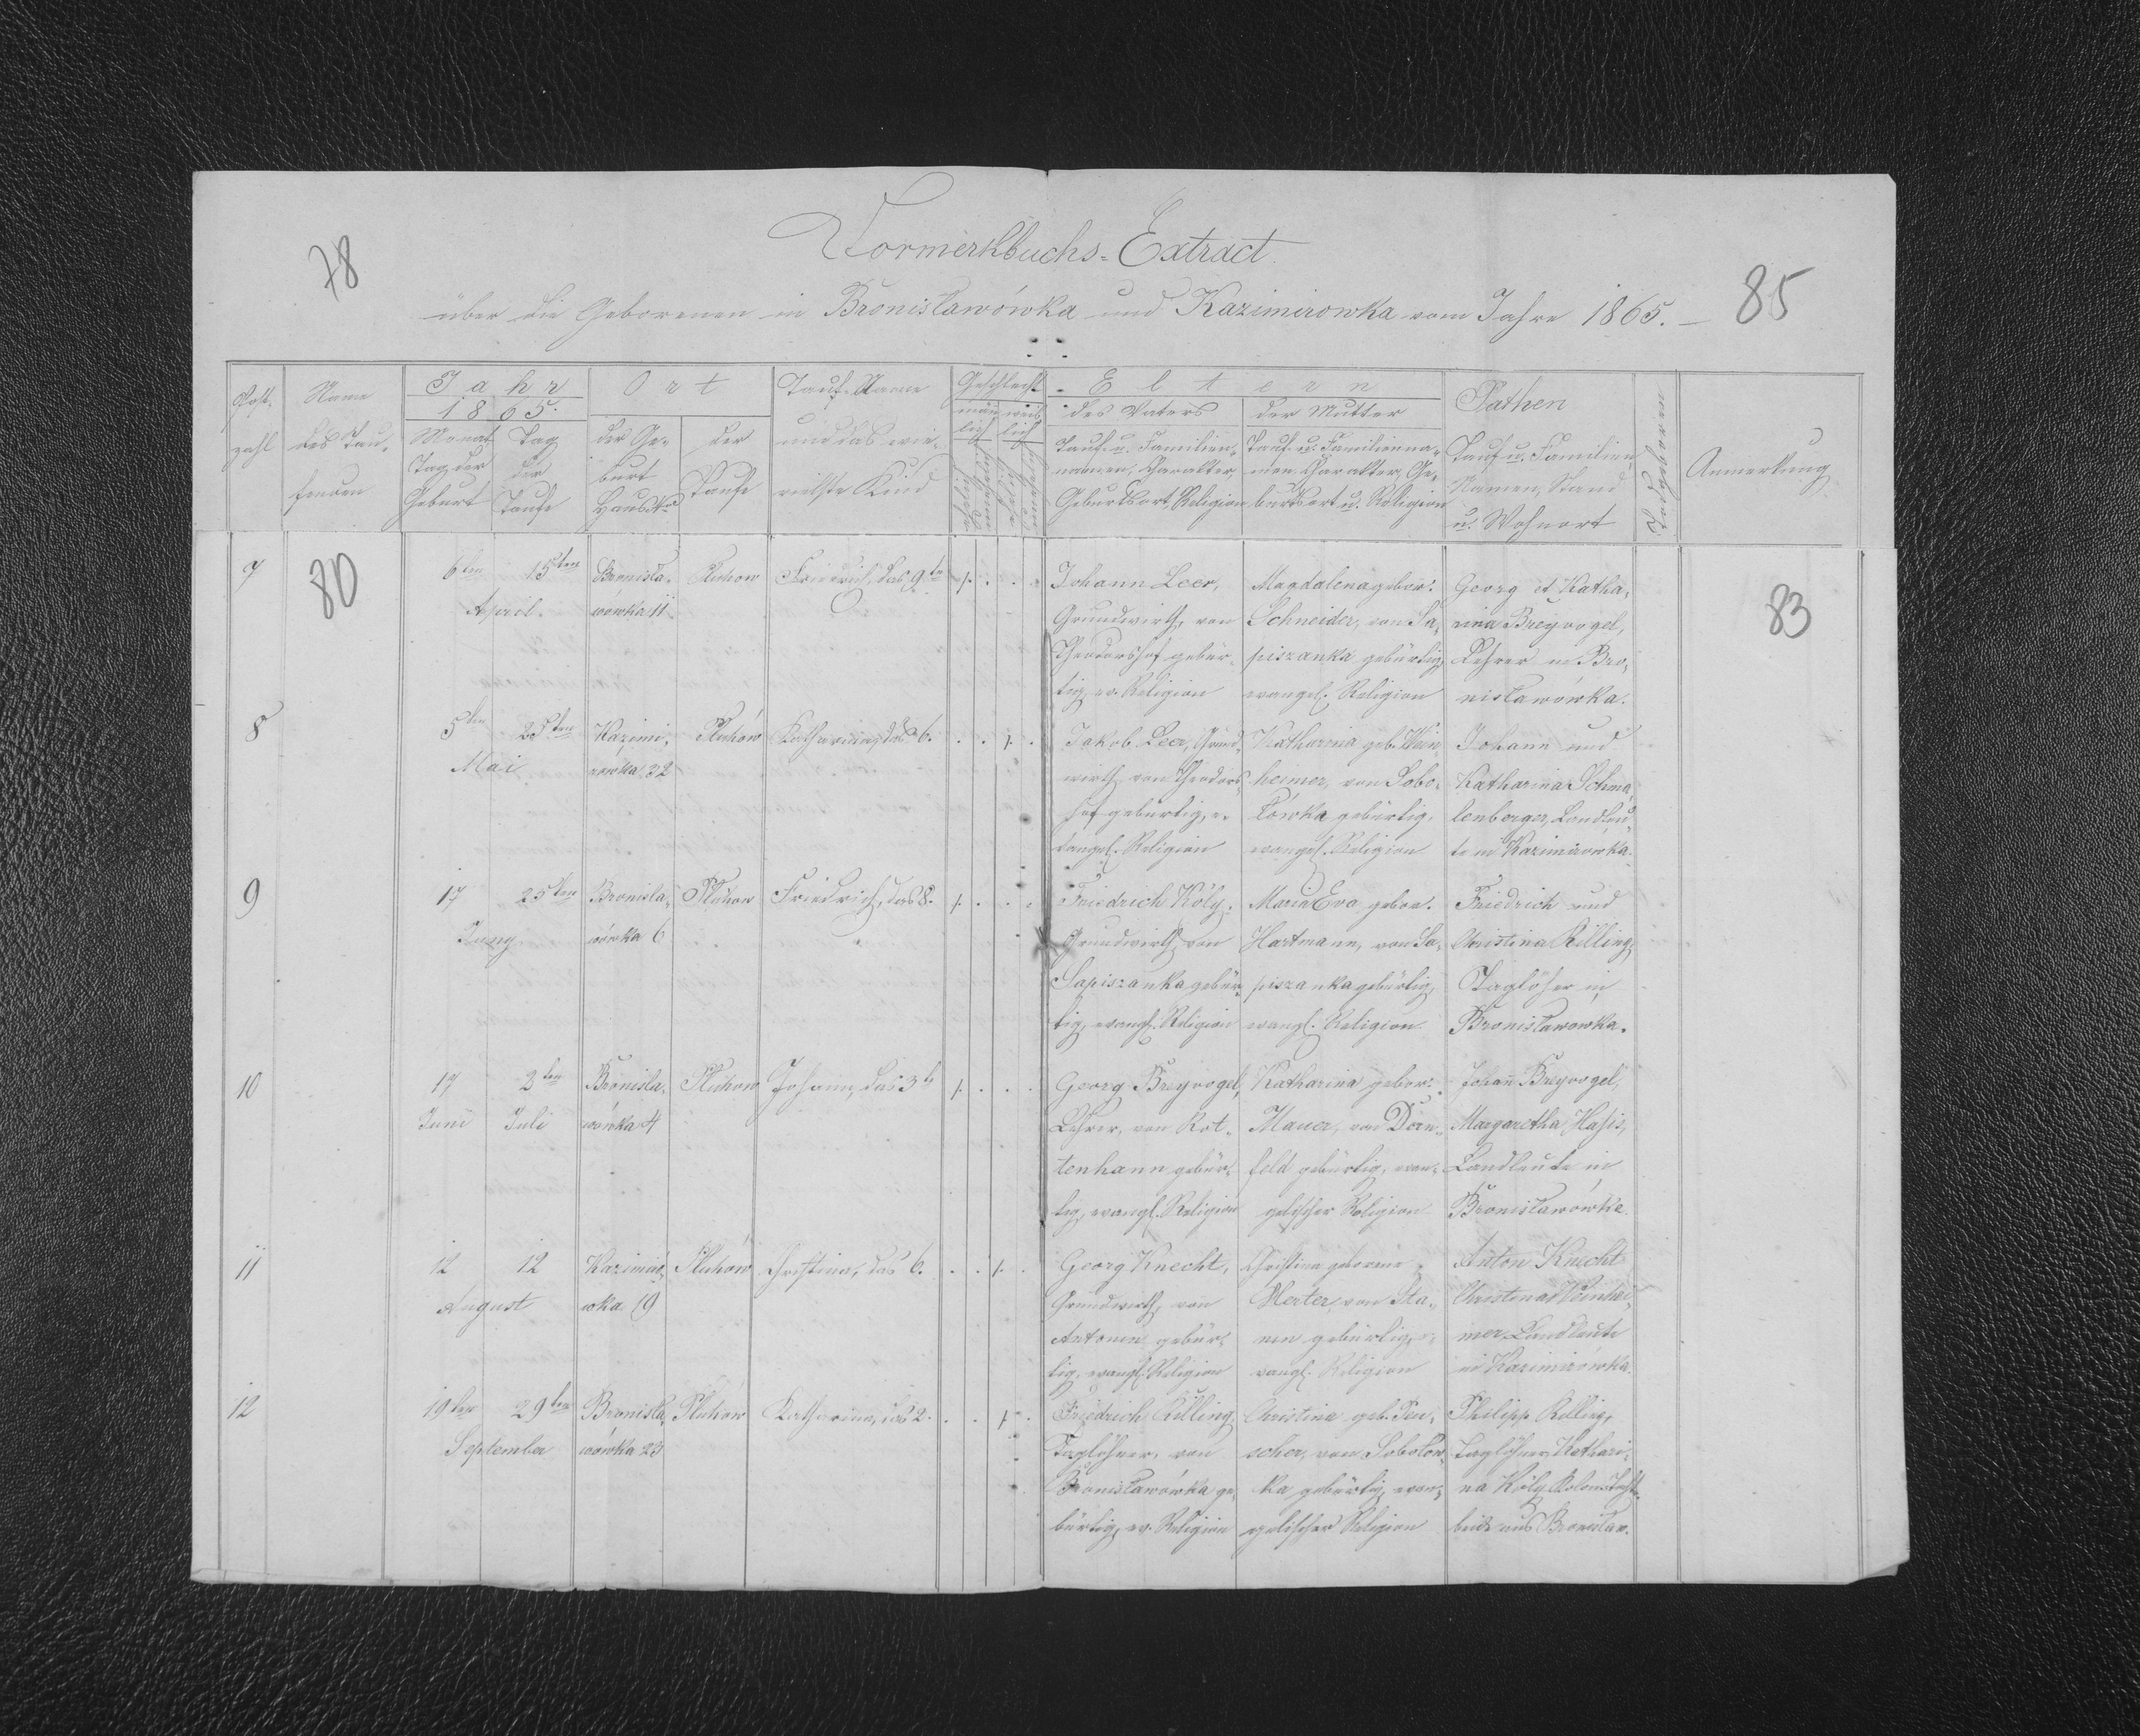 Vormerkbuchs-Extract
78
85
über die Geborenen in Bronisławówka und Kazimirowka vom Jahre 1865. —
Post-
zahl
Name
des Tau-
fenden
Jahr
1865.
Monat
Tag der
Geburt
Tag
der
Taufe
Ort
der Ge-
burt
Haus Nro
der
Taufe
Tauf-Name
und das wie-
vielste Kind
Geschlecht
män
lich
weib
lich
ehelich
unehelich
ehelich
unehelich
Eltern
des Vaters
Tauf- u. Familien-
namen, Charakter,
Geburtsort, Religion
der Mutter
Tauf- u. Familienna-
men, Charakter, Ge-
burtsort u. Religion
Pathen
Tauf u. Familien
Namen, Stand
u. Wohnort
Todtgeboren
Anmerkung
80
83
7
6ten 15ten
April.
Bronisła-
wówka 11
Pluhow
Friedrich, das 9te
Johann Leer,
Grundwirth, von
Theodorshof gebür-
tig, ev. Religion
Magdalena gebor.
Schneider, von Sa-
piszanka gebürtig
evangel. Religion
Georg et Katha-
rina Breyvogel,
Lehrer in Bro-
nisławówka.
8
5ten 25ten
Mai
Kazimi-
rowka 32
Pluhów
Katharina, das 6.
Jakob Leer, Grund-
wirth von Theodors-
hof gebürtig, e-
vangel. Religion
Katharina geb. Wein
heimer, von Sobo-
łówka gebürtig,
evangel. Religion
Johann und
Katharina Schma-
lenberger, Landleu-
te in Kazimirowka.
9
17 25ten
Juny
Bronisla-
wówka 6
Pluhow
Friedrich, das 8.
Friedrich Köly,
Grundwirth von
Sapiszanka gebür-
tig, evangl. Religion
Maria Eva gebor.
Hartmann, von Sa-
piszanka gebürtig,
evangl. Religion
Friedrich und
Christina Killing,
Taglöher in
Bronisławowka.
10
17 2ten
Juni Juli
Bronisla-
wówka 4
Pluhow
Johann, das 3te
Georg Breyvogel,
Lehrer, von Rot-
tenhann gebür-
tig, evangl. Religion
Katharina gebor.
Mauer, von Dorn-
feld gebürtig, evan-
gelischer Religion
Johan Breyvogel,
Margaretha
Landleute in
Bronisławówka.
11
12 12
August
Kazimiró-
wka 19
Pluhów
Christina, das 6.
Georg Knecht,
Grundwirth, von
Antonin gebür-
tig, evangl. Religion
Christina geborene
Merter, von Sta-
nin gebürtig, e-
vangl. Religion
Anton Knecht
Christina Weinhei-
mer, Landleute
in Kazimirówka.
12
19ten 29ten
September
Bronisla-
wówka 23
Pluhów
Katharina, das 2.
Friedrich Killing,
Taglöhner, von
Bronisławówka ge-
bürtig, ev. Religion
Christina geb.
scher, von Sobolow-
ka gebürtig, evan-
gelischer Religion
Philipp Killing,
Taglöhner, Kathari-
na Köly,
beide aus Bronislaw.